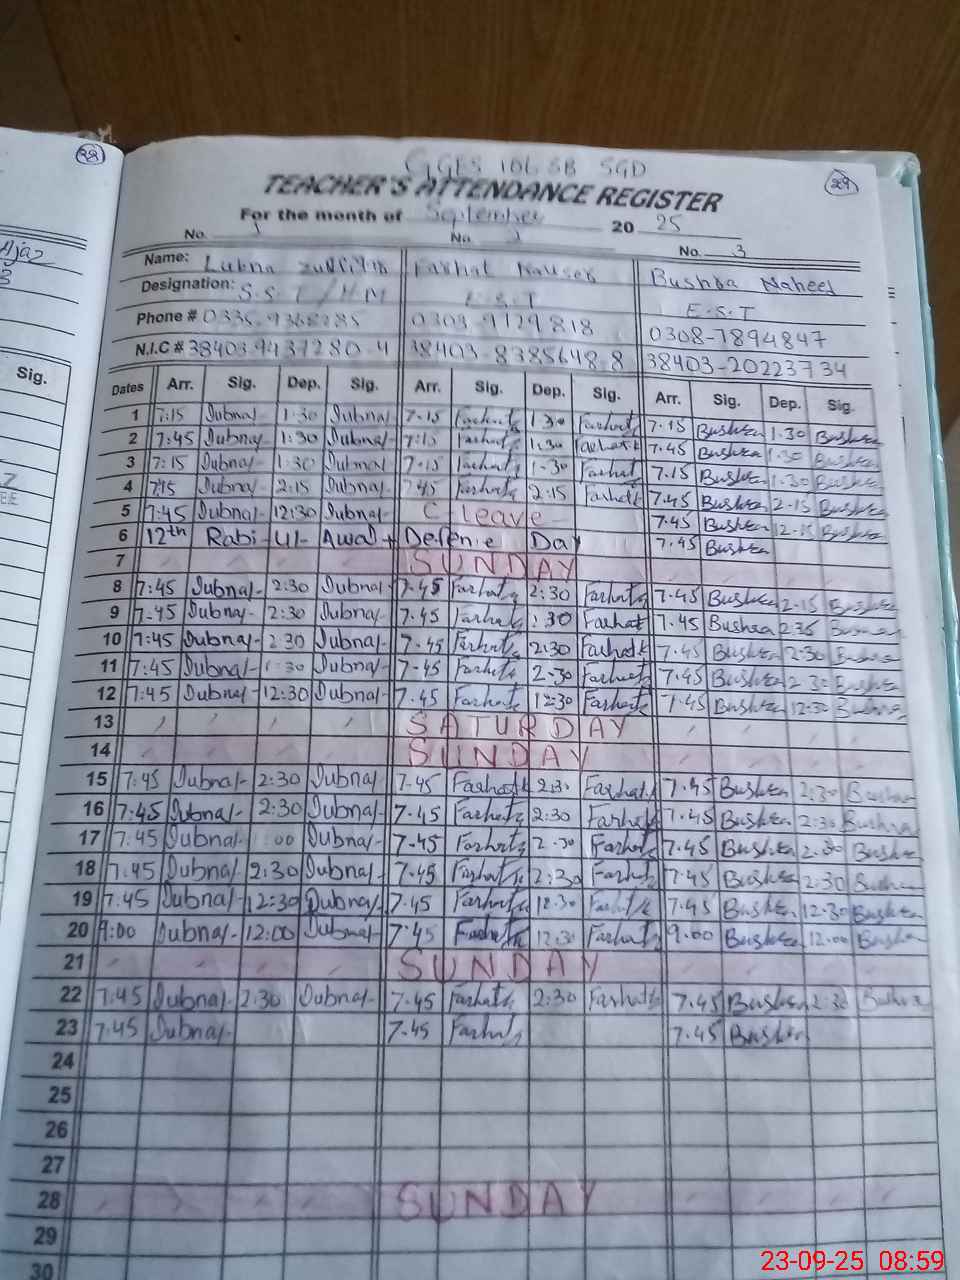 28
GGES 106 SB SGD
29
TEACHER'S ATTENDANCE REGISTER
For the month of September 2025
No. 1 No. 2 No. 3
Name: Lubna Farhat Kauser Bushra Naheed
Designation: S.S.T / H.M E.S.T E.S.T
Phone # 0303-9129818 0308-7894847
N.I.C # 38403-9437280-4 38403-8385648-8 38403-2022373 4
Sig. Dates Arr. Sig. Dep. Sig. Arr. Sig. Dep. Sig. Arr. Sig. Dep. Sig.
1 7:15 Lubna 1:30 Lubna 7-15 Farhat 1-30 Farhat 7.15 Bushra 1.30 Bushra
2 7:45 Lubna 1:30 Lubna Farhat 1.30 Farhat 7.45 Bushra 1.30 Bushra
3 7:15 Lubna 1:30 Lubna 7-15 Farhat 1-30 Farhat 7.15 Bushra 1.30 Bushra
4 7:15 Lubna 2:15 Lubna 7.45 Farhat 2:15 Farhat 7.45 Bushra 2-15 Bushra
5 7:45 Lubna 12:30 Lubna C-leave 7.45 Bushra Bushra
6 12th Rabi-Ul-Awal + Defence Day 7.45 Bushra
7 SUNDAY
8 7:45 Lubna 2:30 Lubna 7-45 Farhat 2:30 Farhat 7.45 Bushra 2-15 Bushra
9 7:45 Lubna 2:30 Lubna 7.45 Farhat :30 Farhat 7.45 Bushra Bushra
10 7:45 Lubna 2 30 Lubna 7.45 Farhat 2:30 Farhat 7.45 Bushra 2:30 Bushra
11 7:45 Lubna :30 Lubna 7-45 Farhat 2.30 Farhat 7.45 Bushra 2 30 Bushra
12 7:45 Lubna 12:30 Lubna 7.45 Farhat 12:30 Farhat 7.45 Bushra 12:30 Bushra
13 SATURDAY
14 SUNDAY
15 7:45 Lubna 2:30 Lubna 7-45 Farhat 2:30 Farhat 7.45 Bushra 2:30 Bushra
16 7:45 Lubna 2:30 Lubna 7.45 Farhat 2:30 Farhat 7.45 Bushra 2:30 Bushra
17 7:45 Lubna :00 Lubna 7-45 Farhat 2.30 Farhat 7.45 Bushra 2.30 Bushra
18 7:45 Lubna 2:30 Lubna 7.45 Farhat 2:30 Farhat 7.45 Bushra 2:30 Bushra
19 7:45 Lubna 12:30 Lubna 7.45 Farhat 12.30 Farhat 7.45 Bushra 12.30 Bushra
20 9:00 Lubna 12:00 Lubna 7.45 Farhat 12.30 Farhat 9.00 Bushra 12.00 Bushra
21 SUNDAY
22 7:45 Lubna 2:30 Lubna 7.45 Farhat 2:30 Farhat 7.45 Bushra 2:30 Bushra
23 7:45 Lubna 7.45 Farhat 7.45 Bushra
24
25
26
27
28 SUNDAY
29
30
23-09-25 08:59